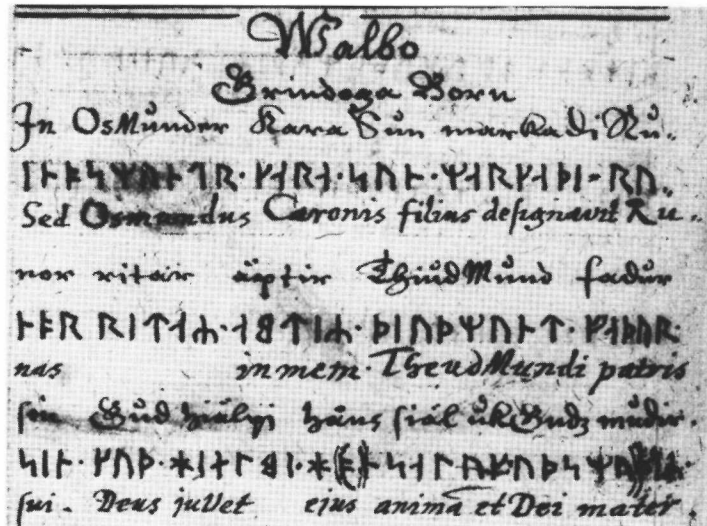 Walbo
Grindoga Born
In OsMunder Kara Sun markadi Ru-
ᛁᚾᚭᛋᛘᚢᚾᛏᚱ· ᚴᛅᚱᛅ· ᛋᚢᚾ· ᛘᛅᚱᚴᛅᚦᛁ- ᚱᚢ-
Sed Osmundus Caronis filius designavit Ru-
nor ritar äptir ThiudMund fadur
ᚾᚭᚱ ᚱᛁᛏᛅ ᛅᛒᛏᛁ ᚦᛁᚢᚦᛘᚢᚾᛏ· ᚠᛅᚦᚢᚱ·
nas in mem. TheudMundi patris
sin Gud hiälpi hans siäl uk Gudz mudir.
ᛋᛁᚾ· ᚴᚢᚦ· ᚼᛁᛅᛚᛒᛁ· ᚼ ᛋᛁᛅᛚ ᚢᚴᚴᚢᚦᛋ
sui. Deus juvet ejus animā et Dei mater.